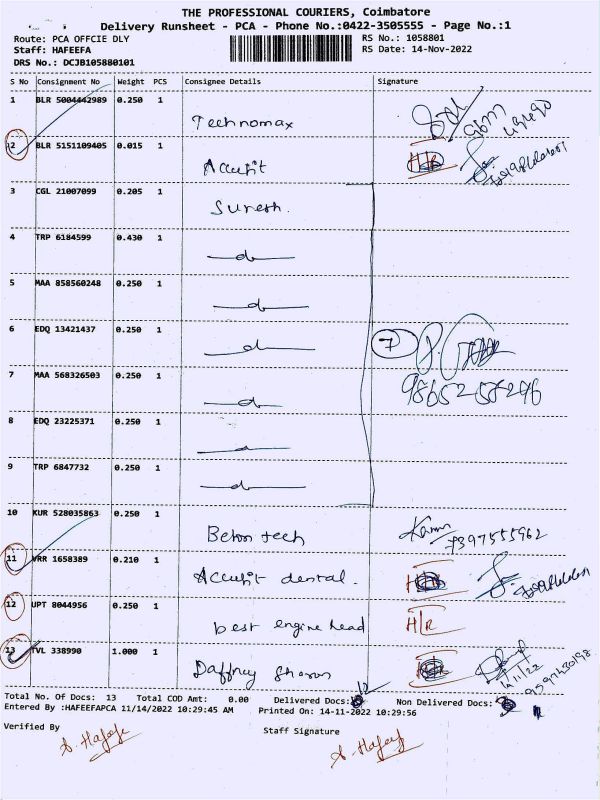 THE PROFESSIONAL COURIERS, Coimbatore
Delivery Runsheet - PCA - Phone No.:0422-3505555 - Page No.:1
Route: PCA OFFCIE DLY RS No.: 1058801
Staff: HAFEEFA RS Date: 14-Nov-2022
DRS No.: DCJB105880101
S No Consignment No Weight PCS Consignee Details Signature
1 BLR 5004442989 0.250 1 Technomax
2 BLR 5151109405 0.015 1 Accufit H/R
3 CGL 21007099 0.205 1 Suresh.
4 TRP 6184599 0.430 1 do
5 MAA 858560248 0.250 1 do
6 EDQ 13421437 0.250 1 do 7
7 MAA 568326503 0.250 1 do 9865258246
8 EDQ 23225371 0.250 1 do
9 TRP 6847732 0.250 1 do
10 KUR 528035863 0.250 1 Beton tech 7397555962
11 VRR 1658389 0.210 1 Accufit dental.
12 UPT 8044956 0.250 1 best engine head H/R
13 TVL 338990 1.000 1 Daffney Sharon
Total No. Of Docs: 13 Total COD Amt: 0.00 Delivered Docs: 12 Non Delivered Docs:
Entered By :HAFEEFAPCA 11/14/2022 10:29:45 AM Printed On: 14-11-2022 10:29:56
Verified By Staff Signature